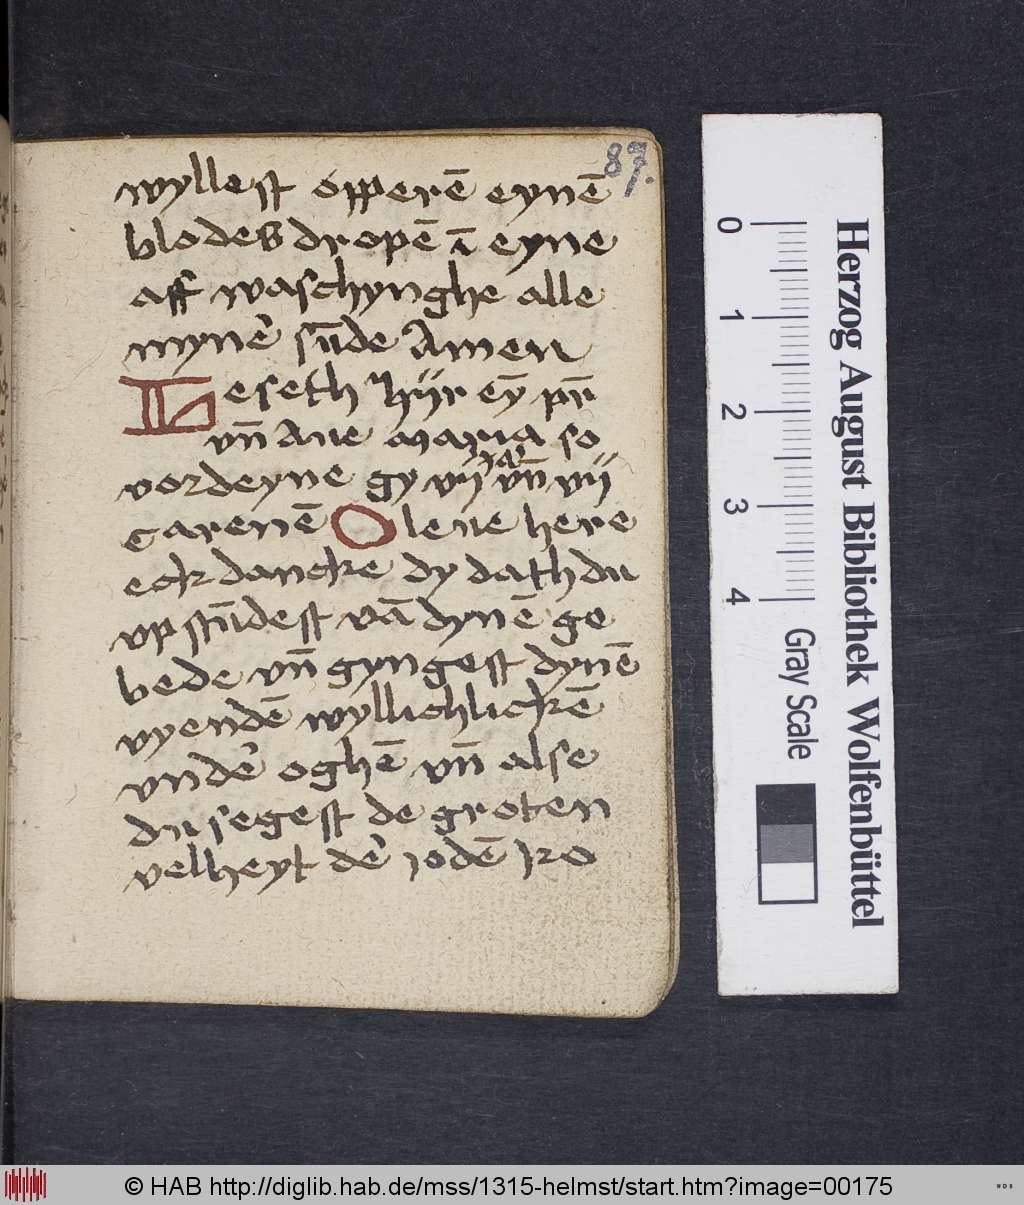 87.
wyllest opperē eynē
blodes dropē ī eyne
aff waschynghe alle
myner sūde Amen
Leseth hÿr eȳ pr̄
vn̄ Aue maria so
vordeyne gy vij vn̄ vij
carenē O leue here
eck dancke dy dath du
vp stūdest vā dynē ge
bede vn̄ gyngest dynē
vyendē wyllichlickē
vnder oghē vn̄ alse
du segest de groten
velheyt der iodē iro
Herzog August Bibliothek Wolfenbüttel
0 1 2 3 4
Gray Scale
© HAB http://diglib.hab.de/mss/1315-helmst/start.htm?image=00175